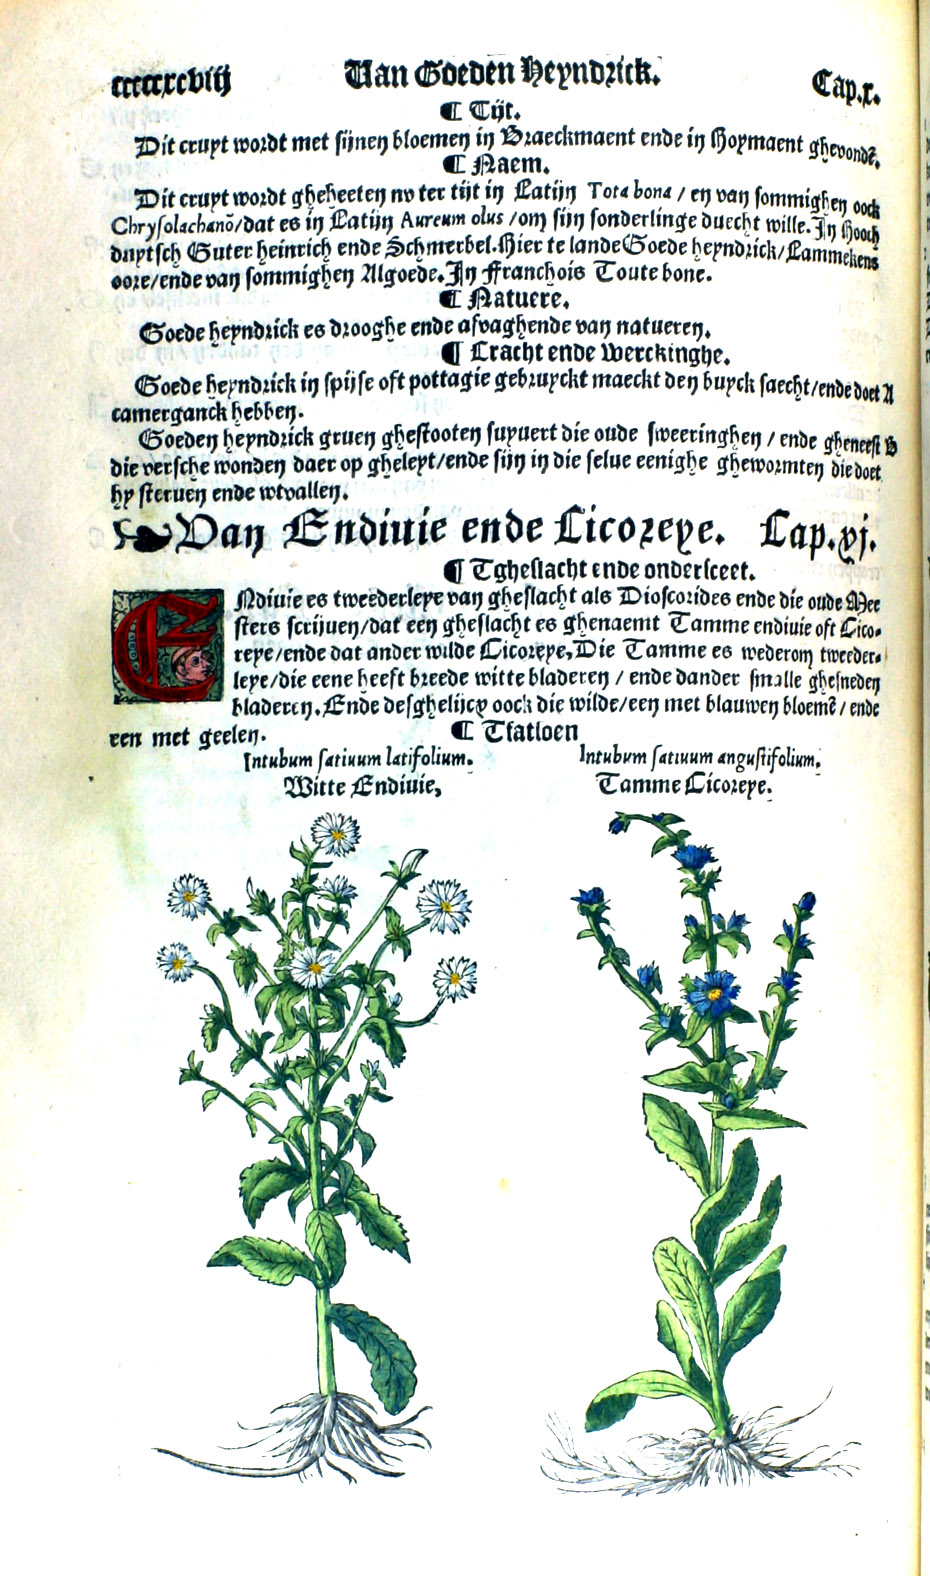 cccccxcviij Van Goeden Heyndrick. Cap.x.
¶ Tijt.
Dit cruyt wordt met sijnen bloemen in Braeckmaent ende in Hoymaent ghevondē.
¶ Naem.
Dit cruyt wordt gheheeten nv ter tijt in Latijn Tota bona / en van sommighen oock
Chrysolachanō/dat es in Latijn Aureum olus /om sijn sonderlinge duecht wille. In Hooch
duytsch Guter heinrich ende Schmerbel. Hier te lande Goede heyndrick/Lammekens
oore/ende van sommighen Algoede. In Franchois Toute bone.
¶ Natuere.
Goede heyndrick es drooghe ende afvaghende van natueren.
¶ Cracht ende Werckinghe.
Goede heyndrick in spijse oft pottagie gebruyckt maeckt den buyck saecht/ende doet A
camerganck hebben.
Goeden heyndrick gruen ghestooten suyuert die oude sweeringhen / ende gheneest B
die versche wonden daer op gheleyt/ende sijn in die selue eenighe ghewormten die doet
hy steruen ende wtvallen.
Van Endiuie ende Cicoreye. Cap.xj.
¶ Tgheslacht ende ondersceet.
ENdiuie es tweederleye van gheslacht als Dioscorides ende die oude Mee
sters scrijuen/dat een gheslacht es ghenaemt Tamme endiuie oft Cico-
reye/ende dat ander wilde Cicoreye, Die Tamme es wederom tweeder-
leye/die eene heeft breede witte bladeren / ende dander smalle ghesneden
bladeren. Ende desghelijcx oock die wilde/een met blauwen bloemē / ende
een met geelen. ¶ Tfatloen
Intubum satiuum latifolium. Intubum satiuum angustifolium.
Witte Endiuie, Tamme Cicoreye.